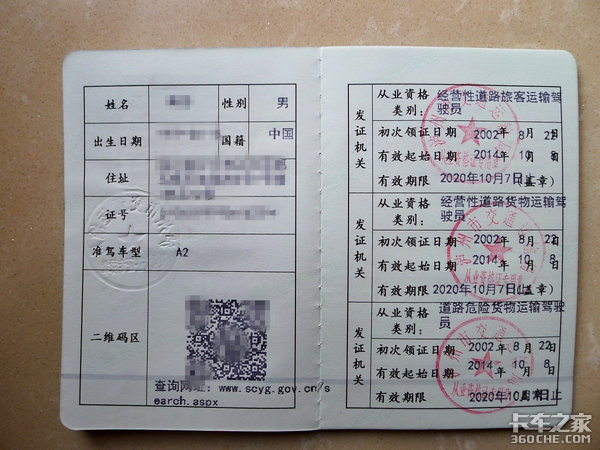 姓名
性别
男
出生日期
国籍
中国
住址
证号
准驾车型
A2
二维码区
查询网址: www.scyg.gov.cn/s
earch.aspx
发证机关
从业资格类别:
经营性道路旅客运输驾
驶员
初次领证日期 2002年 8月 22日
有效起始日期 2014年 10月 8日
有效期限 2020年10月7日(盖章)
发证机关
从业资格类别:
经营性道路货物运输驾
驶员
初次领证日期 2002年 8月 22日
有效起始日期 2014年 10月 8日
有效期限 2020年10月7日(盖章)
发证机关
从业资格类别:
道路危险货物运输驾驶
员
初次领证日期 2002年 8月 22日
有效起始日期 2014年 10月 8日
有效期限 2020年10月
卡车之家
360CHE.COM